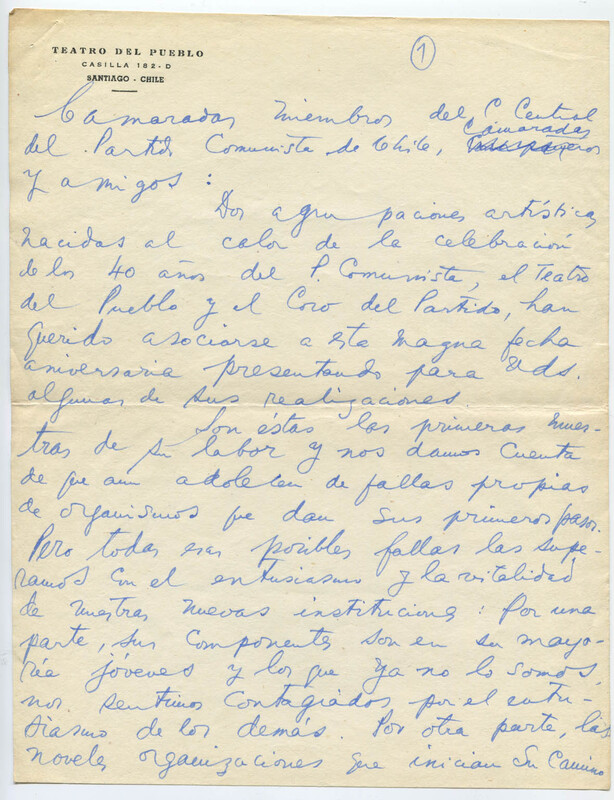 TEATRO DEL PUEBLO
CASILLA 182-D
SANTIAGO - CHILE
1
Camaradas miembros del C Central
del Partido Comunista de Chile, Camaradas
y amigos:
Dos agrupaciones artísticas
nacidas al calor de la celebración
de los 40 años del P. Comunista, el Teatro
del Pueblo y el Coro del Partido, han
querido asociarse a esta magna fecha
aniversaria presentando para Uds.
algunas de sus realizaciones.
Son éstas las primeras mues-
tras de su labor y nos damos cuenta
de que aun adolecen de fallas propias
de organismos que dan sus primeros pasos.
Pero todas esas posibles fallas las supe-
ramos con el entusiasmo y la vitalidad
de nuestras nuevas instituciones: Por una
parte, sus componentes son en su mayo-
ría jóvenes y los que ya no lo somos,
nos sentimos contagiados por el entu-
siasmo de los demás. Por otra parte, las
noveles organizaciones que inician su camino